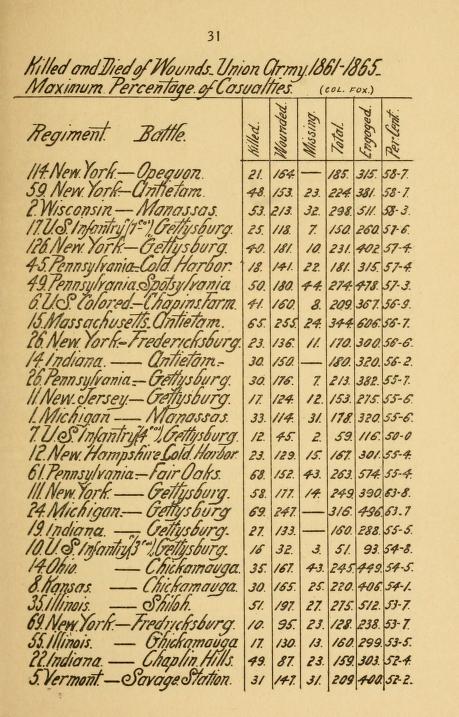 31
Killed and Died of Wounds. Union Army. 1861-1865_
Maximum Percentage of Casualties. (COL. FOX.)
Regiment. Battle. Killed. Wounded. Missing. Total. Engaged. Per Cent.
114 New York — Opequon. 21. 164 — 185. 315. 58-7.
59. New York — Antietam. 48. 153. 23. 224. 381. 58-7.
2. Wisconsin — Manassas. 53. 213. 32. 298. 511. 58-3.
17. U.S. Infantry (7 cos) Gettysburg. 25. 118. 7. 150. 260. 57-6.
126. New York — Gettysburg. 40. 181. 10. 231. 402. 57-4.
45. Pennsylvania — Cold Harbor. 18. 141. 22. 181. 315. 57-4.
49. Pennsylvania Spotsylvania 50. 180. 44. 274. 478. 57-3.
6. U.S Colored — Chapinsfarm. 41. 160 8. 209. 367. 56-9.
15. Massachusetts. Antietam. 65. 255. 24. 344. 606. 56-7.
26. New York — Fredericksburg. 23. 136. 11. 170. 300. 56-6.
14. Indiana. — Antietam. 30. 150. — 180. 320. 56-2.
26. Pennsylvania — Gettysburg. 30. 176. 7. 213. 382. 55-7.
11. New. Jersey — Gettysburg. 17. 124. 12. 153. 275. 55-6.
1. Michigan — Manassas. 33. 114. 31. 178. 320. 55-6.
7. U.S Infantry (4 cos) Gettysburg. 12. 45. 2. 59. 116. 50-0
12. New. Hampshire Cold. Harbor 23. 129. 15. 167. 301. 55-4.
61. Pennsylvania — Fair Oaks. 68. 152. 43. 263. 574. 55-4.
111. New York. — Gettysburg. 58. 177. 14. 249. 390. 63-8.
24. Michigan — Gettysburg 69. 247. — 316. 496. 63.7
19. Indiana. — Gettysburg. 27. 133. — 160. 288. 55-5.
10. U.S Infantry (3 cos) Gettysburg. 16 32. 3. 51. 93. 54-8.
14 Ohio. — Chickamauga. 35. 167. 43. 245. 449. 54-5.
8. Kansas. — Chickamauga. 30. 165. 25. 220. 406. 54-1.
35. Illinois. — Shiloh. 51. 197. 27. 275. 512. 53-7.
69. New York — Fredricksburg. 10. 95. 23. 128. 238. 53-7.
55. Illinois. — Chickamauga 17. 130. 13. 160. 299. 53-5.
22. Indiana. — Chaplin Hills. 49. 87. 23. 159. 303. 52-4.
5. Vermont — Savage Station. 31 147. 31. 209 400. 52-2.